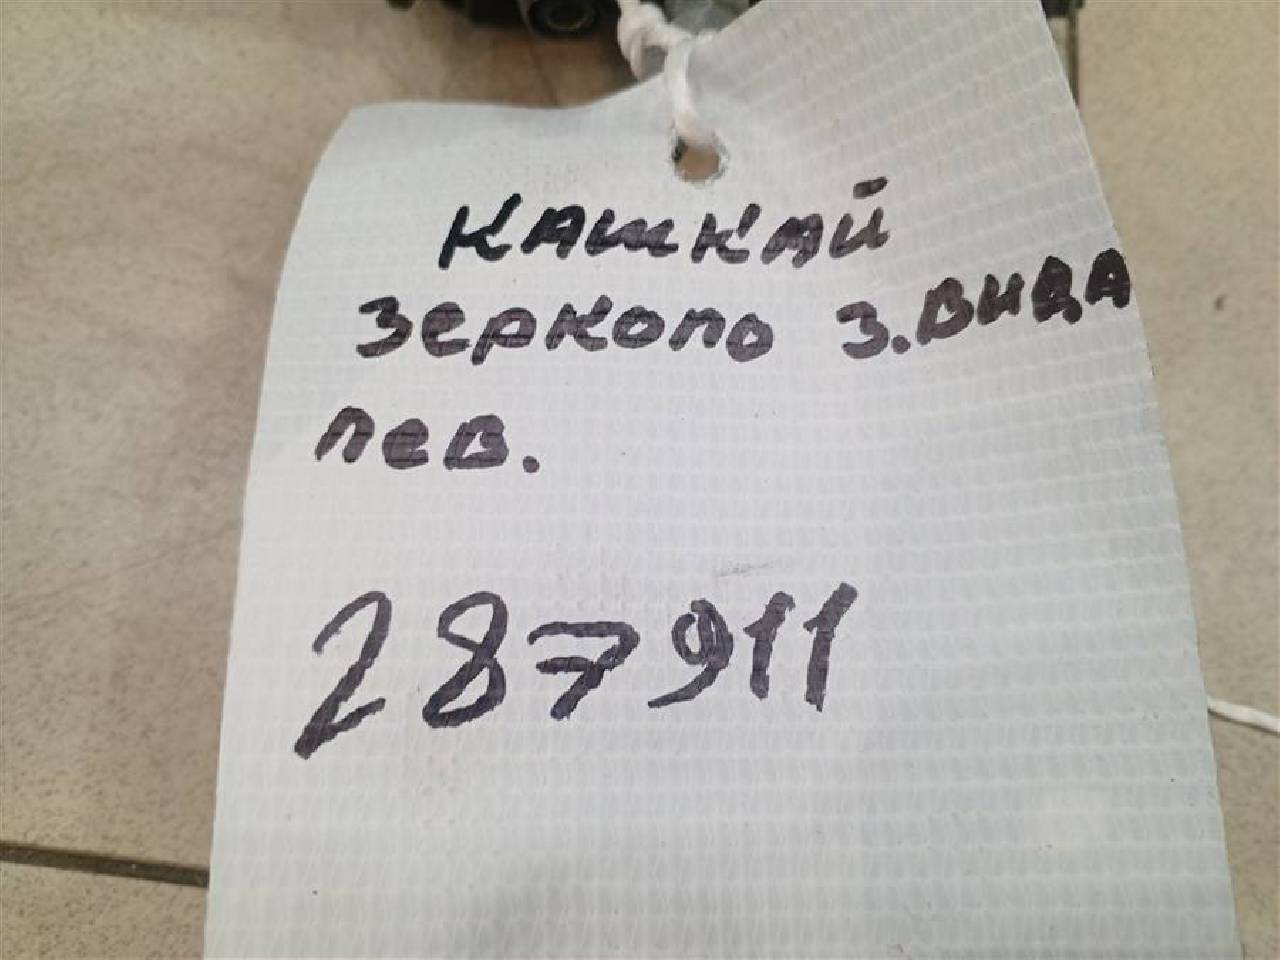 Кашкай
зеркало з.вида
лев.
287911